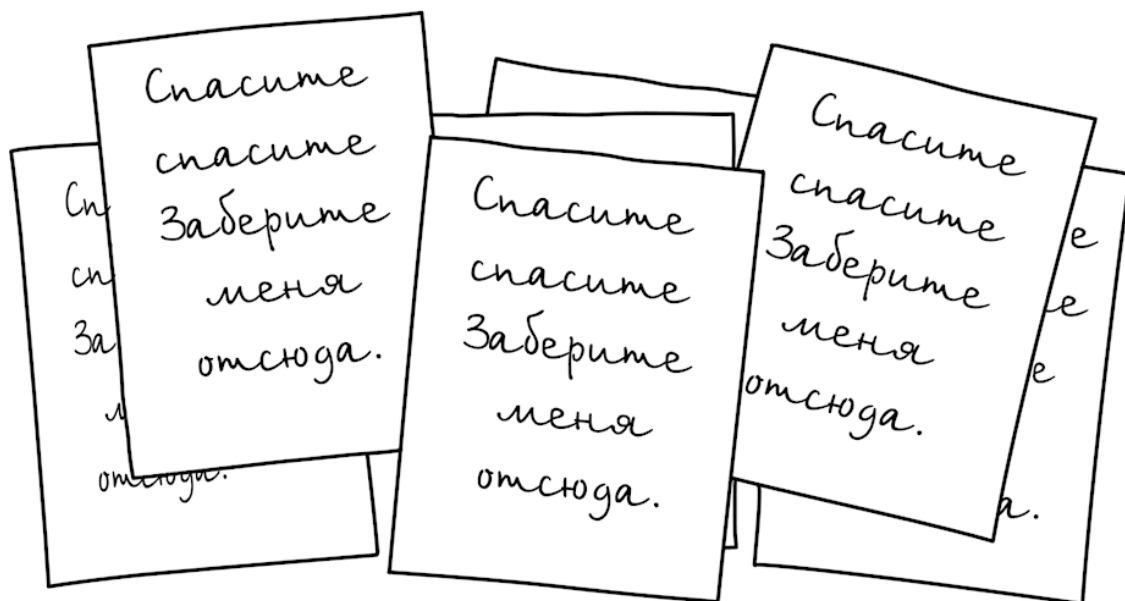 Спасите
спасите
Заберите
меня
отсюда.
Спасите
спасите
Заберите
меня
отсюда.
Спасите
спасите
Заберите
меня
отсюда.